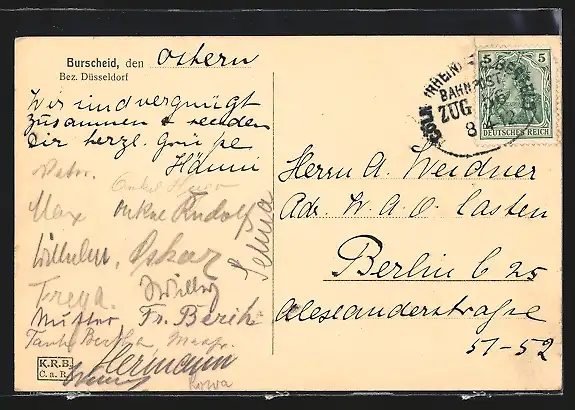 Burscheid, den Ostern
Bez. Düsseldorf
Wir sind vergnügt
zusammen & senden
Dir herzl. Grüße
Hänni
Vater.
Onkel Hugo
Max
Onkel Rudolf
Selma
Wilhelm.
Oskar
Freya.
Willy
Mutter
Fr. Berih
Tante Bertha
Hermann
K.R.B.
C.a.R.
Herrn A. Weidner
Adr. W. A. O. Casten
Berlin C 25
Alexanderstraße
51-52
5 5
DEUTSCHES REICH
CÖLN (RHEIN)
BAHNPOST
ZUG
8